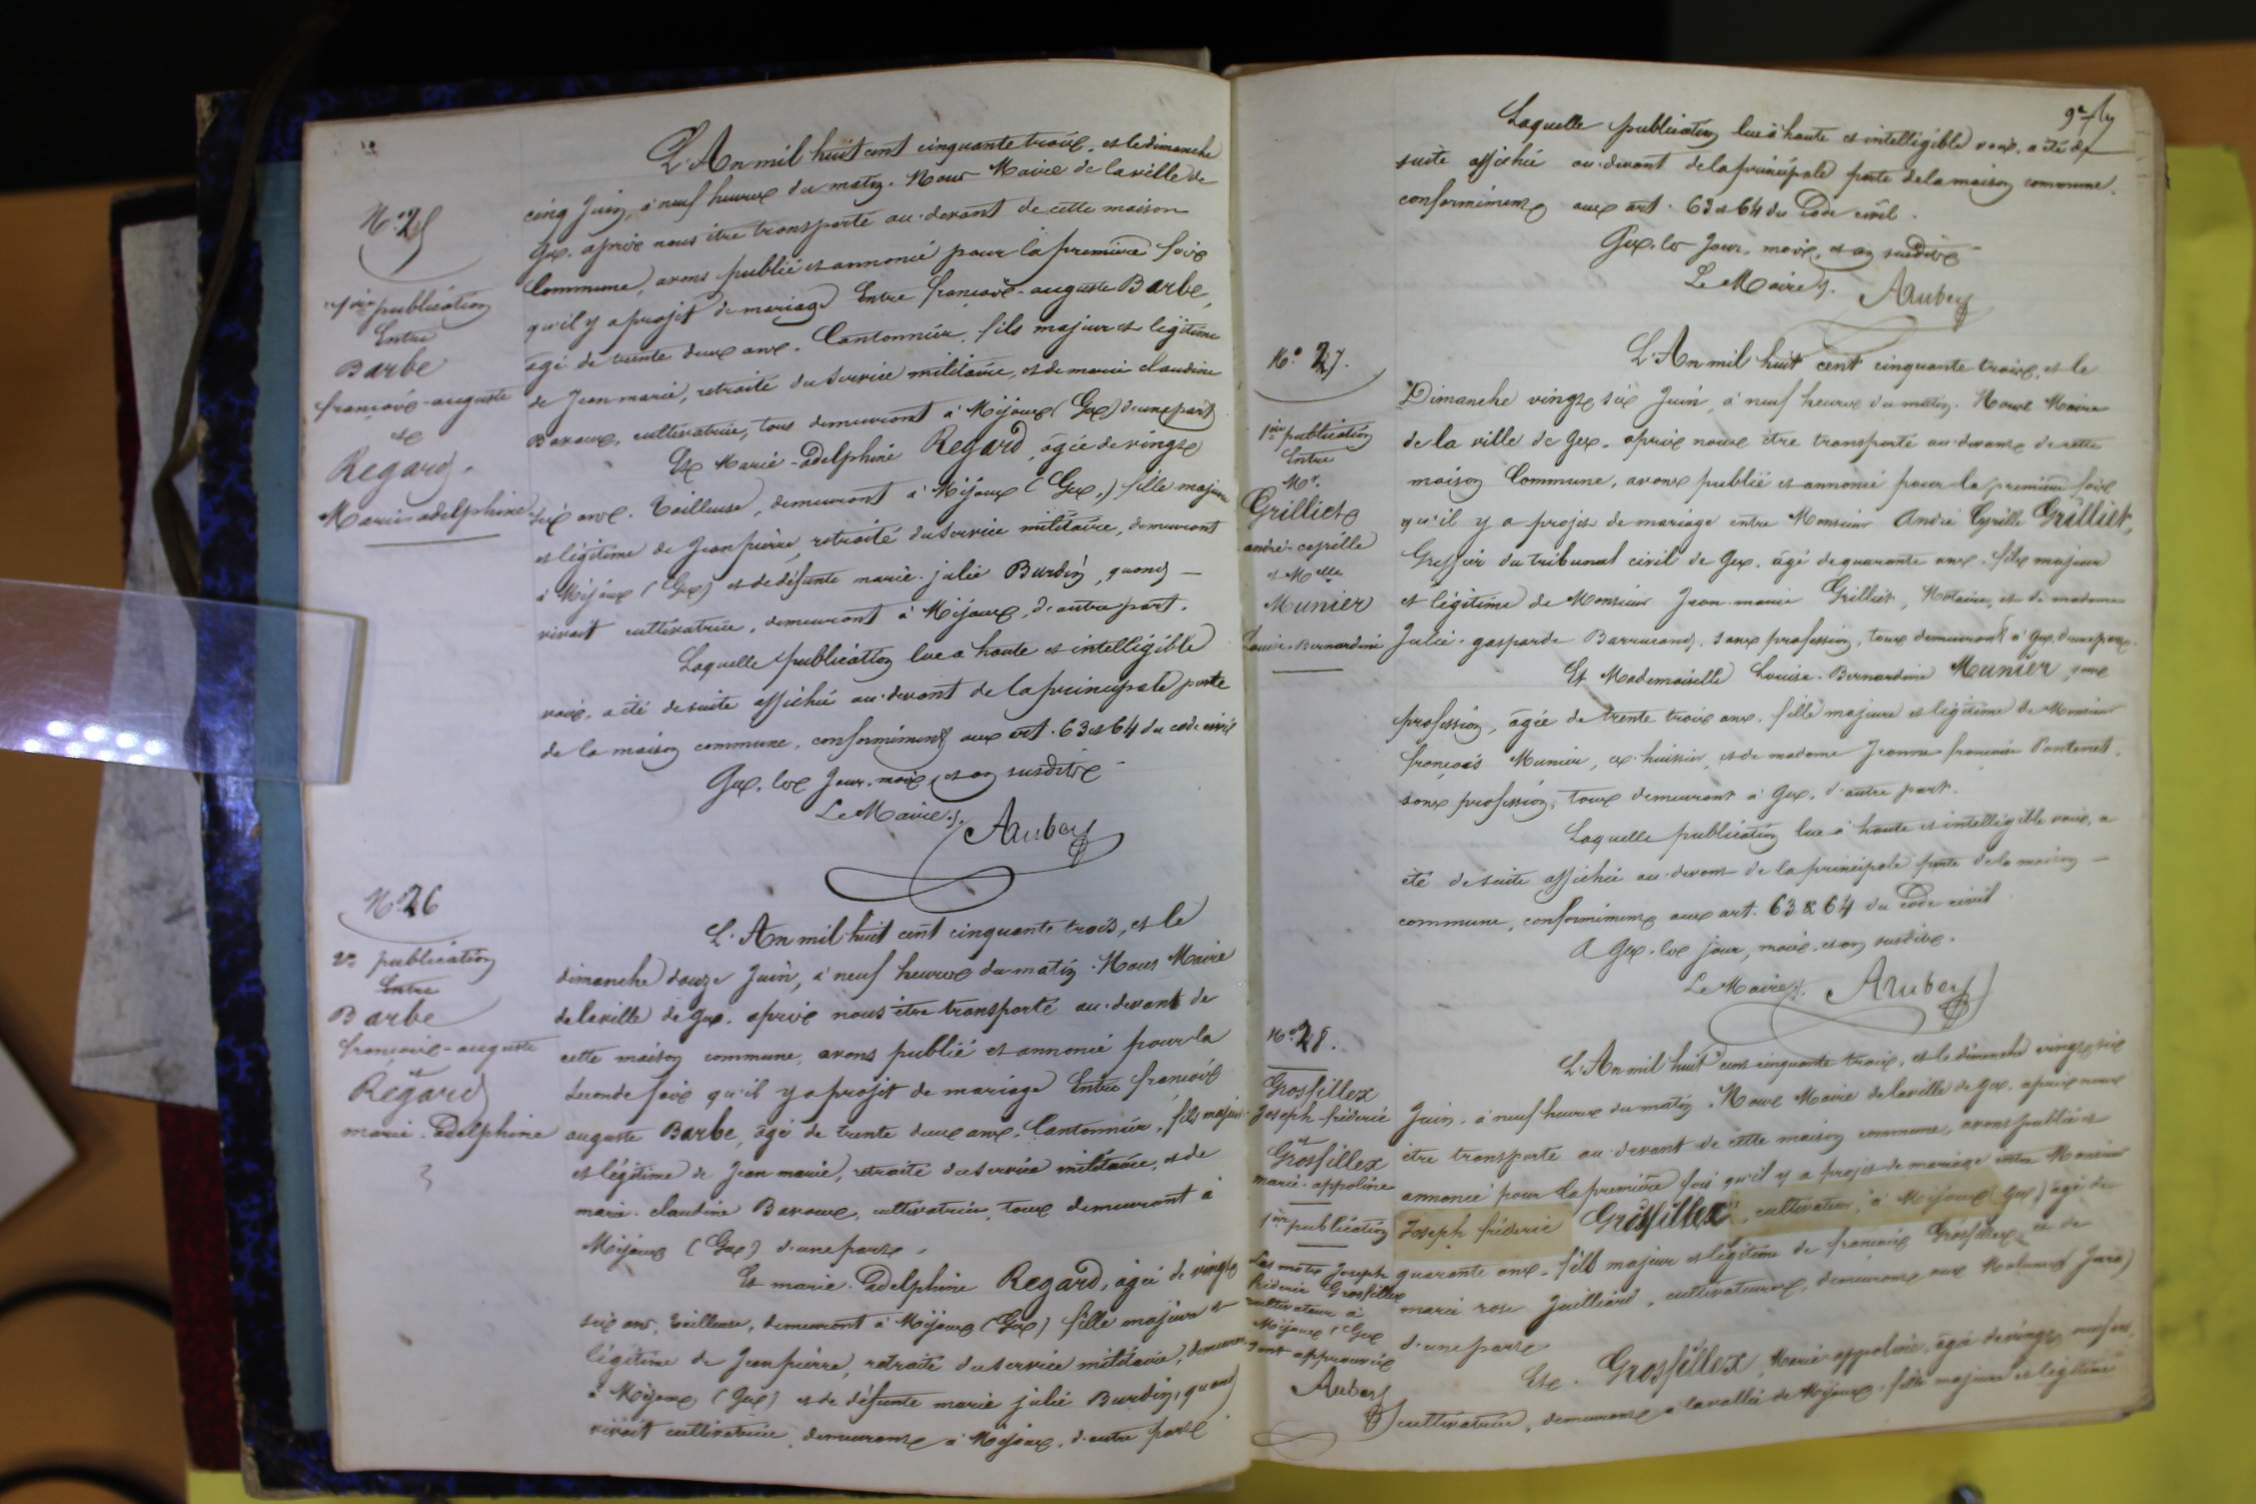 N.° 25
1ère publication
Entre
Barbe
françois-auguste
et
Regard.
Marie-adelphine
L'An mil huit cent cinquante trois, et le dimanche
cinq Juin, à neuf heures du matin. Nous Maire de la ville de
Gex, après nous être transporté au-devant de cette maison
Commune, avons publié et annoncé pour la première fois
qu'il y a projet de mariage Entre françois-auguste Barbe,
âgé de trente deux ans. Cantonnier, fils majeur et légitime
de Jean marie, retraité du service militaire, et de marie claudine
Baroux, cultivatrice, tous demeurant à Mijoux (Gex) d'une part
Et Marie-adelphine Regard, âgée de vingt
six ans. Tailleuse, demeurant à Mijoux (Gex,) fille majeure
et légitime de Jean pierre, retraité du service militaire, demeurant
à Mijoux (Gex) et de défunte marie-julie Burdin, quand
vivait cultivatrice, demeurant à Mijoux, d'autre part.
Laquelle publication lue a haute et intelligible
voix, a été de suite affiché au-devant de la principale porte
de la maison commune, conformément aux art. 63 et 64 du code civil
Gex, les Jour, mois, et an susdits
Le Maire.
Aubery
N.° 26
2e publication
Entre
Barbe
françois-auguste
Regard
marie. adelphine
L'An mil huit cent cinquante trois, et le
dimanche douze Juin, à neuf heures du matin. Nous Maire
de la ville de Gex. après nous être transporté au-devant de
cette maison commune, avons publié et annoncé pour la
seconde fois qu'il y a projet de mariage Entre françois
auguste Barbe, âgé de trente deux ans. Cantonnier, fils majeur
et légitime de Jean marie, retraité du service militaire, et de
marie. claudine Baroux, cultivatrice, tous demeurant à
Mijoux (Gex) d'une part.
Et marie. adelphine Regard, âgée de vingt
six ans, tailleuse, demeurant à Mijoux (Gex) fille majeure et
légitime de Jean pierre, retraité du service militaire, demeurant
à Mijoux (Gex) et de défunte marie julie Burdin, quand
vivait cultivatrice, demeurant à Mijoux, d'autre part
Laquelle publication lue à haute et intelligible voix, a été de
suite affiché au-devant de la principale porte de la maison commune.
conformément aux art. 63 et 64 du Code civil.
Gex, les Jour, mois, et an susdits
Le Maire.
Aubery
N.° 27.
1ère publication
Entre
Mr.
Grilliet
andré-cyrille
et Melle
Munier
Louise-Bernardine
L'An mil huit cent cinquante trois, et le
Dimanche vingt six Juin, à neuf heures du matin. Nous Maire
de la ville de Gex. après nous être transporté au-devant de cette
maison Commune, avons publié et annoncé pour la première fois
qu'il y a projet de mariage entre Monsieur André Cyrille Grilliet,
Greffier du tribunal civil de Gex, âgé de quarante ans. fils majeur
et légitime de Monsieur Jean-marie Grilliet, Notaire, et de madame
Julie-gasparde Barrucand, sans profession, tous demeurant à Gex, d'une part.
Et Mademoiselle Louise-Bernardine Munier, sans
profession, âgée de trente trois ans. fille majeure et légitime de Monsieur
françois Munier, ex-huissier, et de madame Jeanne françoise Pontenet.
sans profession, tous demeurant à Gex, d'autre part.
Laquelle publication lue à haute et intelligible voix, a
été de suite affiché au-devant de la principale porte de la maison
commune, conformément aux art. 63 & 64 du Code civil
A Gex, les jour, mois, et an susdits.
Le Maire.
Aubery
N.° 28.
Grosfillex
Joseph-fréderic
et
Grosfillex
marie-appoline
1ère publication
Les mots Joseph
fréderic Grosfillex
cultivateur à
Mijoux (Gex
sont approuvés
Aubery
L'An mil huit cent cinquante trois, et le dimanche vingt six
Juin, à neuf heures du matin. Nous Maire de la ville de Gex. après nous
être transporté au-devant de cette maison commune, avons publié et
annoncé pour la première fois qu'il y a projet de mariage entre Monsieur
Joseph fréderic Grosfillex, cultivateur, à Mijoux (Gex) âgé de
quarante ans. fils majeur et légitime de françois Grosfillex et de
marie rose Juilliard, cultivateurs, demeurant aux Molunes (Jura)
d'une part
Et. Grosfillex, Marie-appoline, âgée de vingt neuf ans,
cultivatrice, demeurant a la vallée de Mijoux, fille majeure et légitime